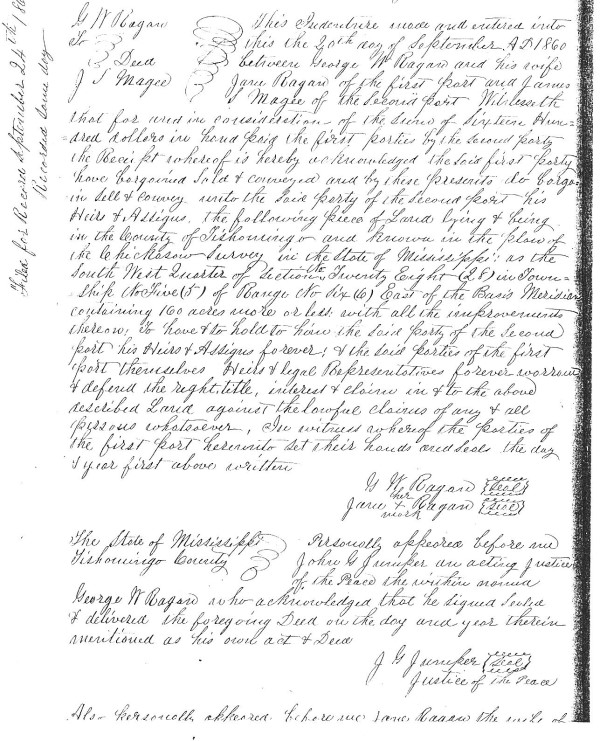 Filed for Record September 24th 186
Recorded same day
G W Ragan
To
Deed
J S Magee
This Indenture made and entired into
this the 20th day of September AD 1860
between George W Ragan and his wife
Jane Ragan of the first part and James
S Magee of the Second part Witnesseth
that for and in consideration of the sum of Sixteen Hun-
=dred dollars in hand paid the first parties by the Second party
the Receipt whereof is hereby acknowledged the said first party
have bargained Sold & conveyed and by these presents do barga
in Sell & Convey unto the Said party of the Second part his
Heirs & Assigns, the following piece of Land lying & being
in the County of Tishomingo and known in the plan of
the Chickasaw Survey in the State of Mississippi: as the
South West Quarter of Section No Twenty Eight (28) in Town=
=ship No Five (5) of Range No Six (6) East of the Basis Meridian
containing 160 acres more or less with all the improvements
thereon; To have & to hold to him the said party of the Second
part his Heirs & Assigns forever; & the said parties of the first
part themselves Heirs & legal Representatives forever warran
& defend the right, title, interest & claim in & to the above
described Land against the lawful claims of any & all
persons whatsoever, In witness whereof the parties of
the first part hereunto set their hands and seals the day
& year first above written
G W Ragan {Seal}
her
Jane + Ragan {Seal}
mark
The State of Mississippi
Tishomingo County
Personally appeared before me
John G Jumper an acting Justice
of the Peace the within named
George W Ragan who acknowledged that he signed Sealed
& delivered the foregoing Deed on the day and year therein
mentioned as his own act & Deed
J G Jumper {Seal}
Justice of the Peace
Also personally appeared before me Jane Ragan the wife of